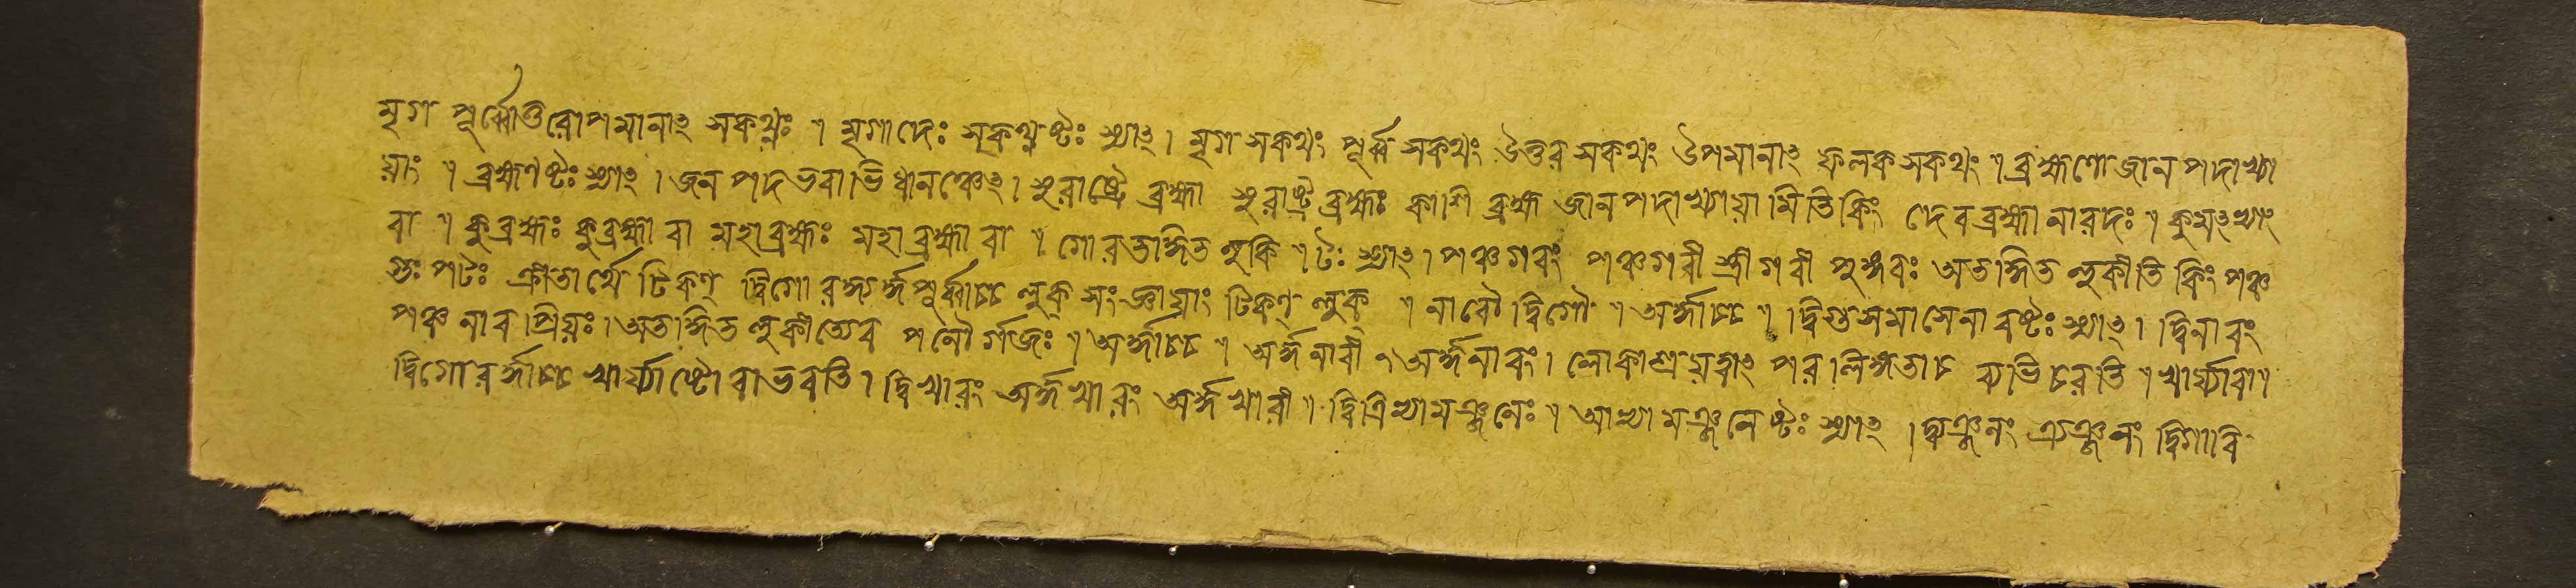 মৃগ পূর্ব্বোত্তরোপমানাৎ সকথ্নঃ ॥ মৃগাদেঃ সকথ্নষ্টঃ স্যাৎ। মৃগ সকথং পূর্ব্ব সকথং উত্তর সকথং উপমানাৎ ফলক সকথং ॥ ব্রহ্মণো জানপদাখ্যা
য়াং ॥ ব্রহ্মণষ্টঃ স্যাৎ। জনপদভবাভিধানঞ্চেৎ। সুরাষ্ট্রে ব্রহ্মা সুরাষ্ট্রব্রহ্মঃ কাশি ব্রহ্ম জানপদাখ্যায়ামিতি কিং দেবব্রহ্মা নারদঃ ॥ কুমহদ্ভ্যাং
বা ॥ কুব্রহ্মঃ কুব্রহ্মা বা মহাব্রহ্মঃ মহাব্রহ্মা বা ॥ গোরতদ্ধিত লুকি ॥ টঃ স্যাৎ। পঞ্চগবং পঞ্চগবী স্ত্রীগবী পুঙ্গবঃ অতদ্ধিত লুকীতি কিং পঞ্চ
গুঃ পটঃ ক্রীতার্থে টিকণ্ দ্বিগোরর্দ্ধপূর্ব্বাচ্চ লুক্ সংজ্ঞায়াং টিকণ্ লুক্ ॥ নাবো দ্বিগৌ ॥ অর্দ্ধাচ্চ ॥ দ্বিগুসমাসে নাবষ্টঃ স্যাৎ। দ্বিনাবং
পঞ্চ নাব প্রিয়ঃ। অতদ্ধিত লুকীত্যেব পনৌর্গজঃ ॥ অর্দ্ধাচ্চ ॥ অর্দ্ধনাবী অর্দ্ধনাবং। লোকাশ্রয়ত্বাৎ পরলিঙ্গতাচ ব্যভিচরতি ॥ খার্য্যাবা॥
দ্বিগোরর্দ্ধাচ্চ খার্য্যাষ্টো বা ভবতি। দ্বিখারং অর্দ্ধখারং অর্দ্ধখারী ॥ দ্বিত্রিভ্যামঞ্জলেঃ ॥ আভ্যামঞ্জলেষ্টঃ স্যাৎ। দ্ব্যঞ্জলং ত্র্যঞ্জলং দ্বিগাবি